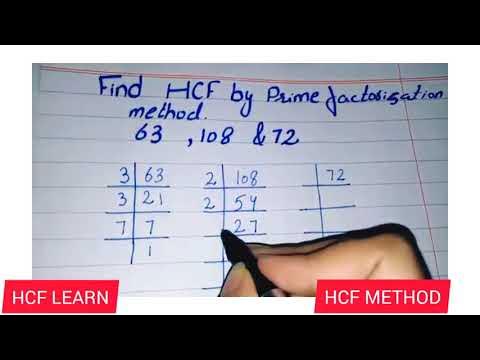 Find HCF by Prime factorization
method.
63 , 108 & 72
3 63
3 21
7 7
1
2 108
2 54
27
72
HCF LEARN
HCF METHOD